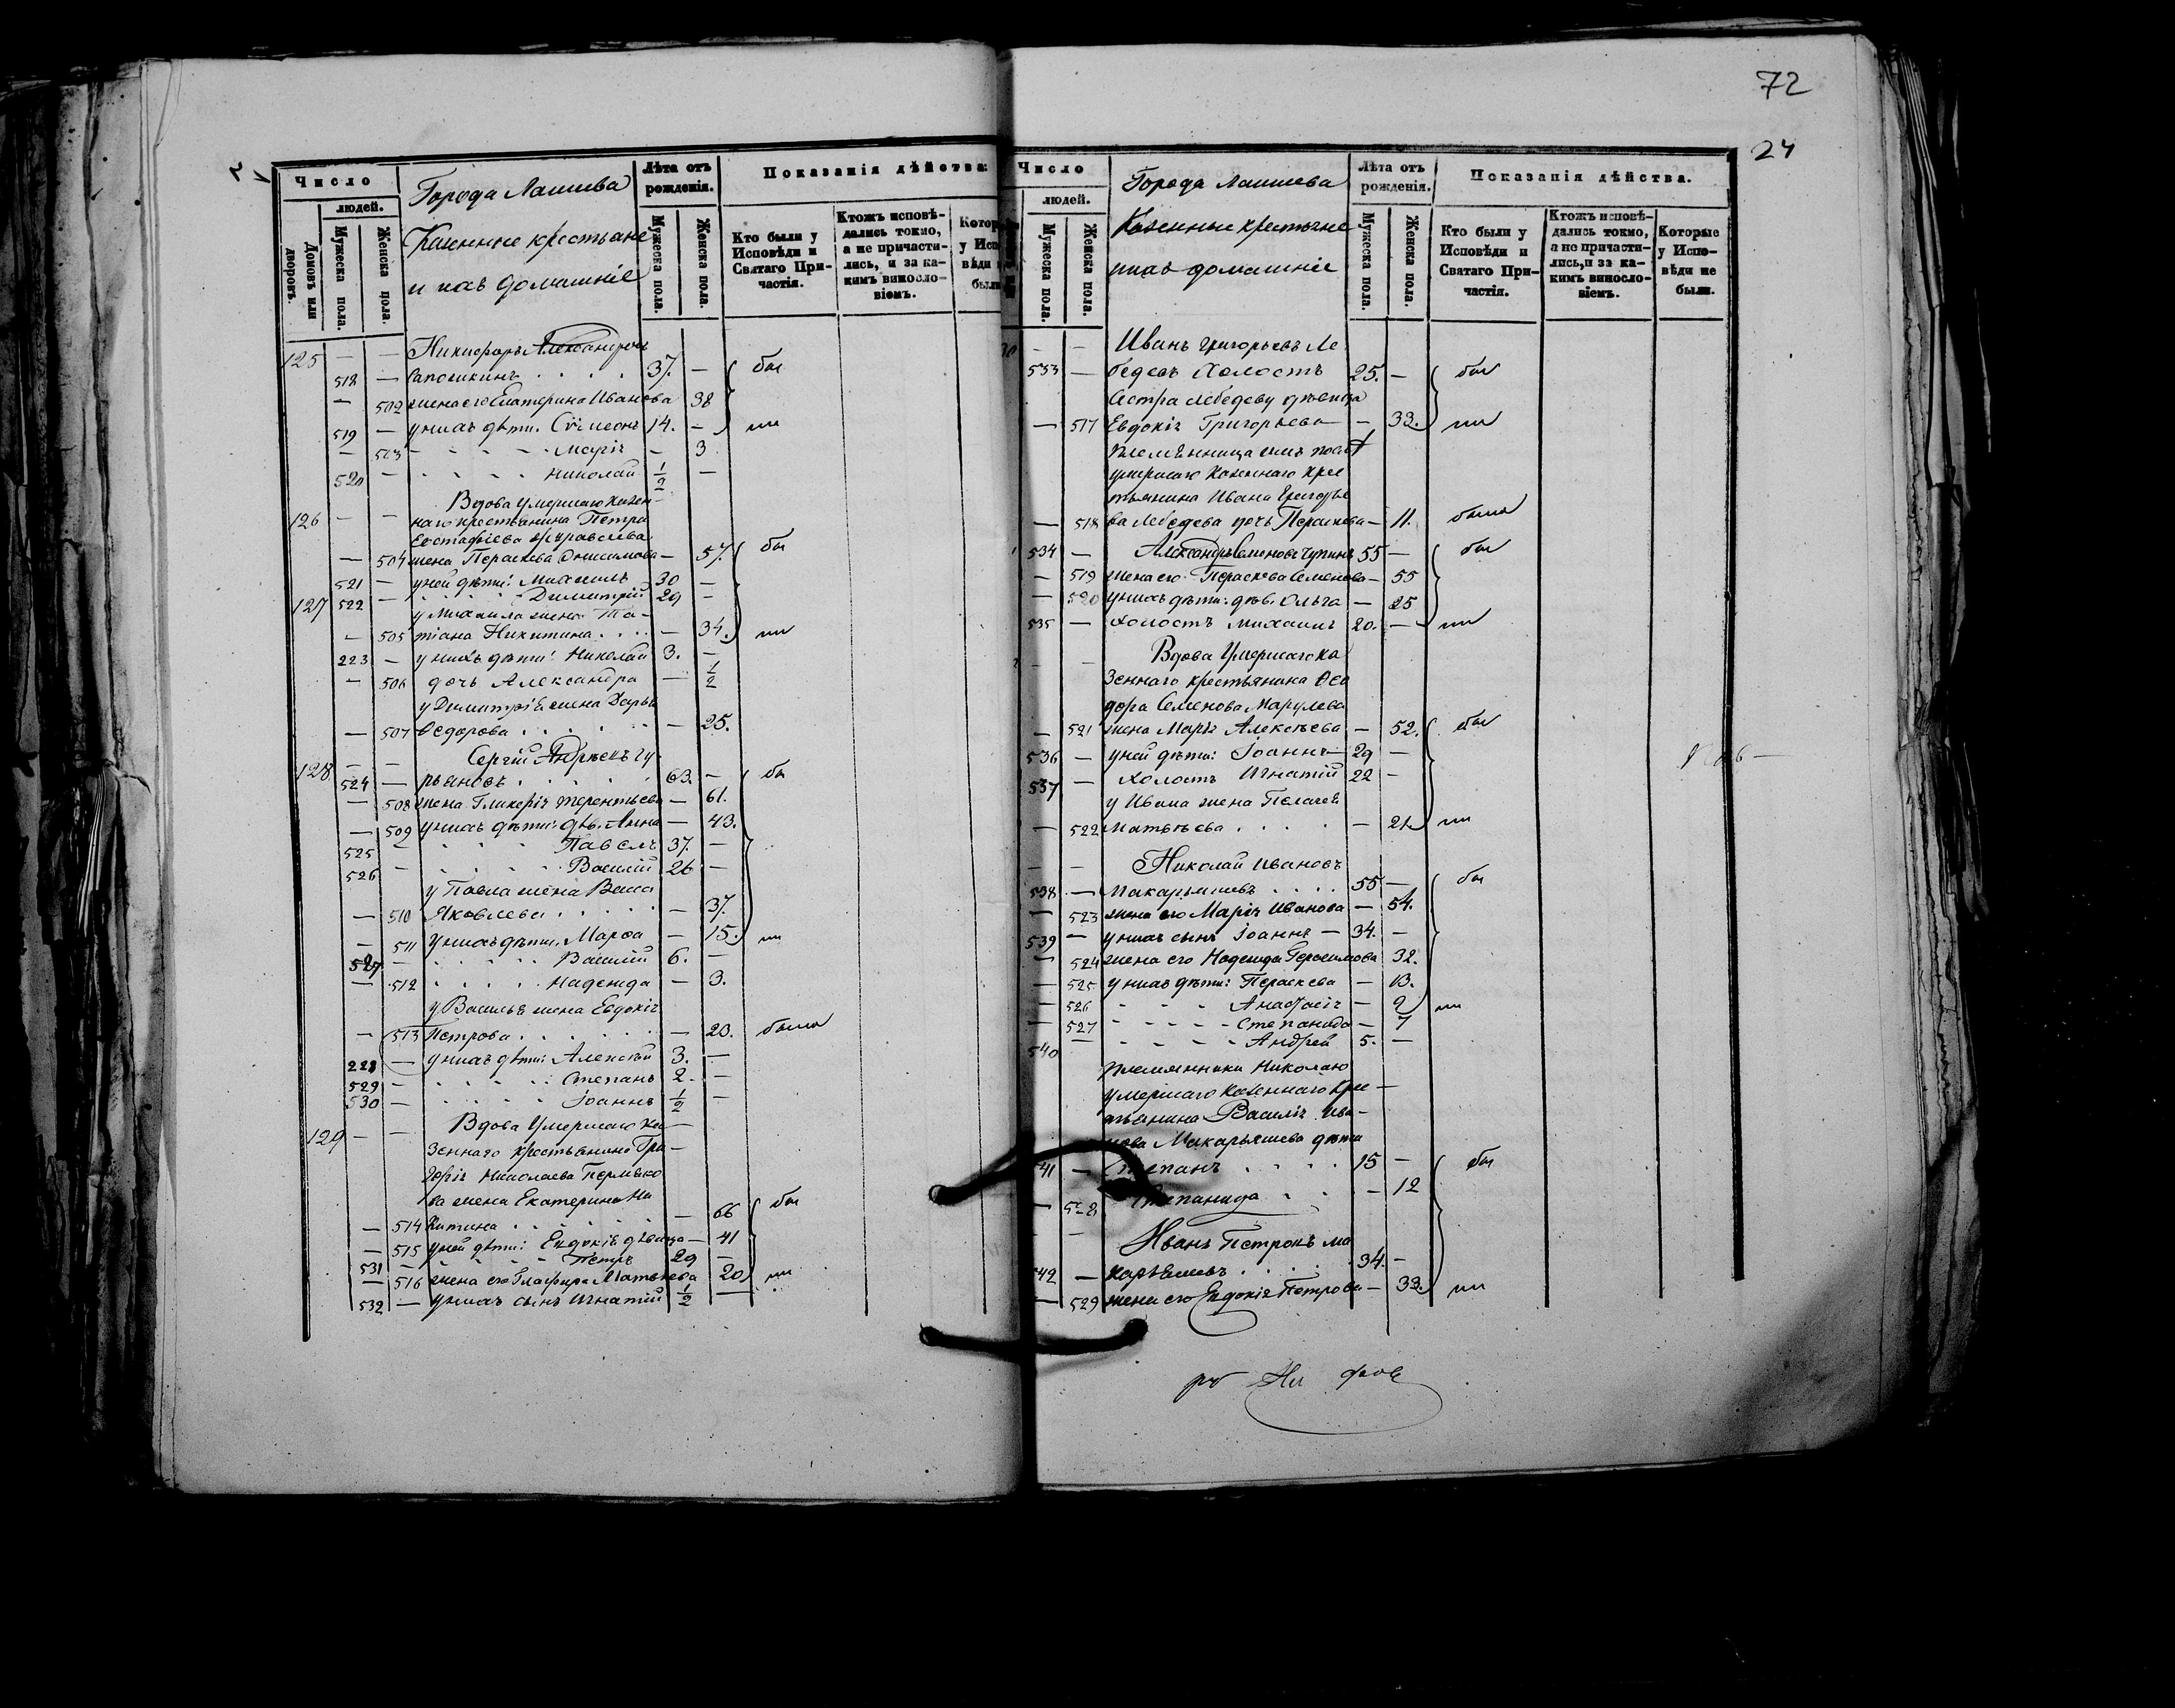 72
24
Число
людей.
Домовъ или дворовъ.
Мужеска пола.
Женска пола.
Города Лаишева
Казенные крестьяне
и ихъ домашніе
Лѣта отъ рожденія.
Мужеска пола.
Женска пола.
Показанія дѣйства
Кто были у Исповѣди и Святаго Причастія.
Ктожъ исповѣдались токмо, а не причастились, и за какимъ винословіемъ.
125 — — Никифоръ Александровъ
518 — Сапошкинъ . . . . 37. — бы
— 502 жена его Екатерина Иванова 38
519 — у нихъ дѣти. Сѵмеонъ 14. — ли
— 503 - - - - Марія — 3
520 — - - - - Николай ½ —
Вдова умершаго казен-
126 — — наго крестьянина Петра
Евстафіева Журавлева
— 504 жена Параскева Онисимова — 57. бы
521 — у ней дѣти: Михаилъ 30 —
127 522 — . . . . Димитрій 29 —
у Михаила жена Та-
— 505 тіана Никитина . . . . — 34. ли
223 — у нихъ дѣти: Николай 3. —
— 506 дочь Александра — ½
у Димитрія жена Дарья
— 507 Ѳедорова . . . . . — 25.
128 — — Сергій Андреевъ Гу-
524 — рьяновъ . . . . . 63. — бы
— 508 жена Гликерія Терентьева — 61.
— 509 у нихъ дѣти: дѣв. Анна — 43.
525 . . . . Павелъ 37. —
526 — . . . . Василій 26 —
у Павла жена Васса
— 510 Яковлева . . . . . — 37.
— 511 у нихъ дѣти. Марѳа — 15. ли
527 — . . . . . Василій 6. —
— 512 . . . . . Надежда — 3.
у Василья жена Евдокія
— 513 Петрова . . . . . — 20. была
228 — у нихъ дѣти: Алексѣй 3. —
529 — . . . . . Степанъ 2. —
530 — . . . . Іоаннъ ½ —
129 — — Вдова умершаго ка-
зеннаго крестьянина Гри-
горія Николаева
жена Екатерина Ни
— 514 китина . . . . . — 66 бы
— 515 у ней дѣти: Евдокія дѣвица — 41
531 — - - - - Петръ 29 —
— 516 жена его Глафира Матвѣева 20 ли
532 — у нихъ сынъ Игнатій ½ —
Число
людей.
Мужеска пола.
Женска пола.
Города Лаишева
Казенные крестьяне
и ихъ домашніе
Лѣта отъ рожденія.
Мужеска пола.
Женска пола.
Показанія дѣйства.
Кто были у Исповѣди и Святаго Причастія.
Ктожъ исповѣдались токмо, а не причастились, и за какимъ винословіемъ.
Которые у Исповѣди не были.
— — Иванъ Григорьевъ Ле
533 — бедевъ Холостъ 25. — бы
Сестра Лебедеву дѣвица
— 517 Евдокія Григорьева — 33. ли
Племянница имъ послѣ
умершаго казеннаго крес
тьянина Ивана Григорье
— 518 ва Лебедева дочь Параскева — 11. была
534 — Александръ Семеновъ Чупинъ 55 — бы
— 519 жена его Параскева Семенова — 55
— 520 у нихъ дѣти: дѣв. Ольга — 25
535 — холостъ Михаилъ 20. — ли
— — Вдова умершаго ка
зеннаго крестьянина Ѳео
дора Семенова Марулева
— 521 жена Марія Алексѣева — 52. бы
536 — у ней дѣти: Іоаннъ 29 —
537 — холостъ Игнатій 22 —
у Ивана жена Пелагея
— 522 Матвѣева . . . . — 21. ли
— — Николай Ивановъ
538 — Макарьяшевъ . . . . 55 — бы
— 523 жена его Марія Иванова — 54.
539 — у нихъ сынъ Іоаннъ — 34. —
— 524 жена его Надежда Герасимова 32.
— 525 у нихъ дѣти: Параскева — 13.
— 526 - - - Анастасія — 9 ли
— 527 - - - - - Степанида — 7
540 — - - - - Андрей 5. —
Племянники Николаю
умершаго казеннаго кре —
стьянина Василія Ива-
нова Макарьяшева дѣти
41 — Степанъ . . . . 15 — бы
— 528 Степанида . . . — 12
— Иванъ Петровъ Ма
542 — карьяшевъ . . . . . 34. —
— 529 жена его Евдокія Петрова — 33. ли